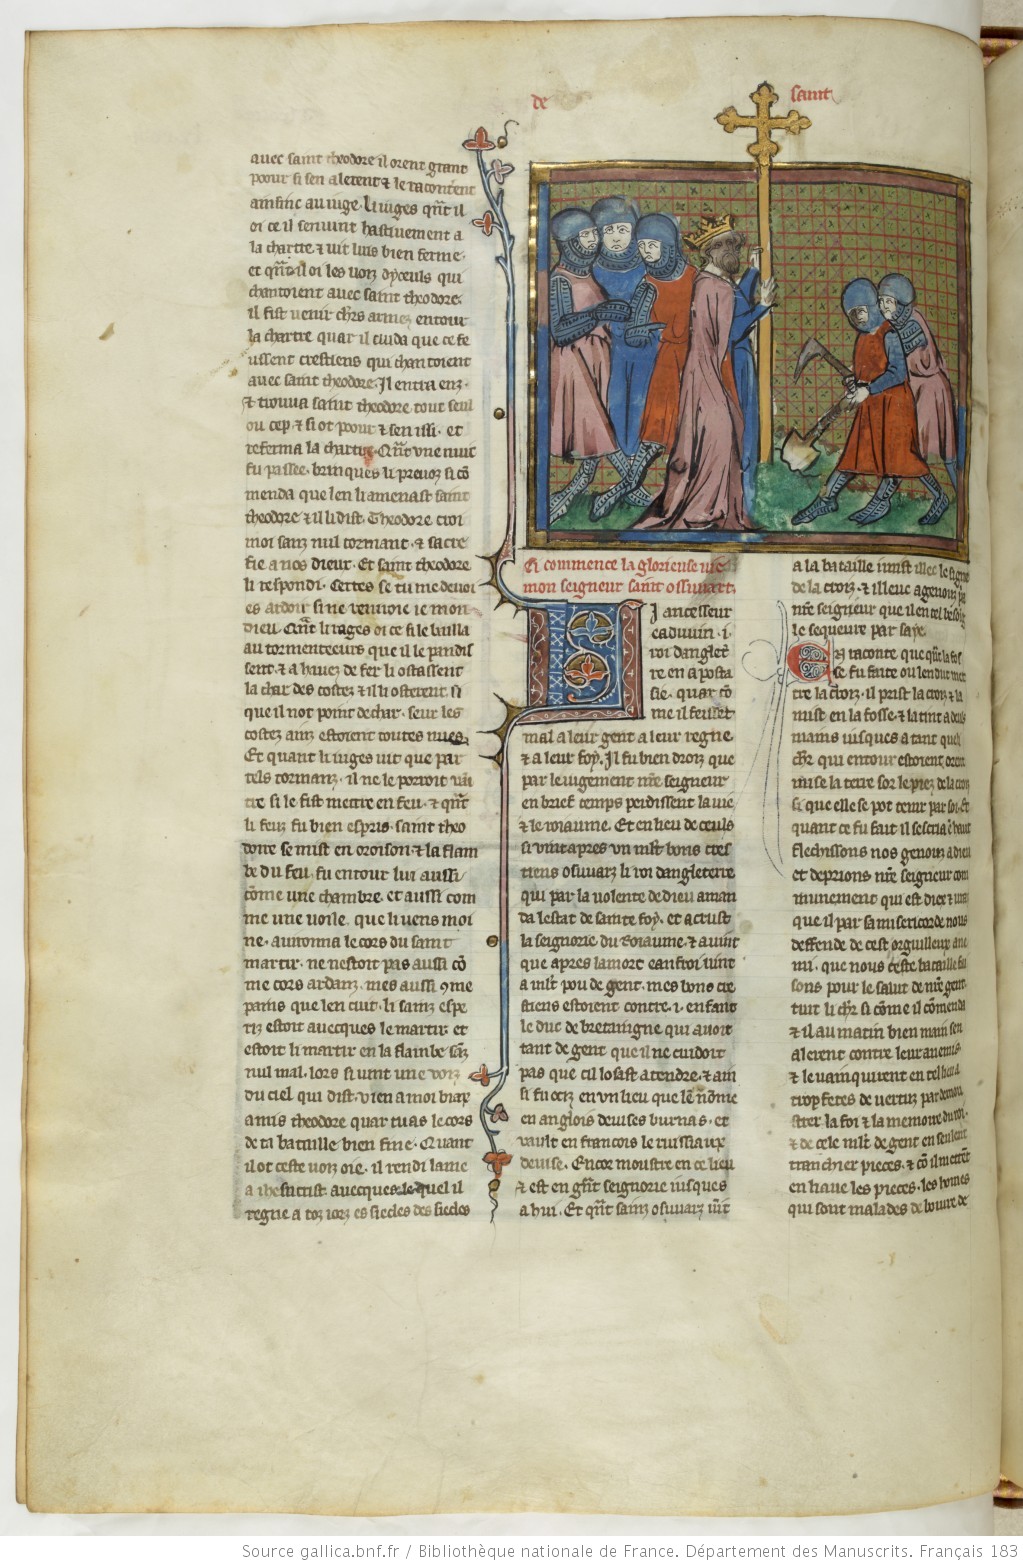 de saint
avec saint theodore il orent grant
poour si sen alerent & le raconterent
ainsinc au iuge. Li iuges q̃nt il
oi ce il seruint hastiuement a
la chartre. & vit luis bien ferme.
et q̃nt il oi les uoiz dyceuls qui
chantoient auec saint theodore.
il fist uenir ch̃rs armez entour
la chartre quar il cuida que ce fe
ussent crestiens qui chantoient
auec saint theodore. Il entra enz.
& trouua saint theodore tout seul
ou cep. & si ot poour & sen issi. et
referma la chartre. Q̃nt vne nuit
fu passee. brinques li preuoz si cõ
menda que len li amenast saint
theodore & il li dist. Theodore croi
moi sanz nul tormant. & sacre
fie a nos dieux. Et saint theodore
li respondi. Certes se tu me deuoi
es ardoir si ne renuoie ie mon
dieu. Q̃nt li iuges oi ce si le bailla
au tormenteeurs que il le pandis
sent. & a hauez de fer li ostassent
la char des costez & il li osterent si
que il not point de char. seur les
costez ainz estoient toutes nues.
Et quant li iuges uit que par
tels tormanz. il ne le porroit uai
tre si le fist metre en feu. & q̃nt
li feuz fu bien espris. saint theo
dore se mist en oroison. & la flam
be du feu. fu entour lui aussi
cõme une chambre. et aussi com
me une uoile. que li uens moi
ne. auironna le cors du saint
martir. ne nestoit pas aussi cõ
me cors ardanz. mes aussi 9me
pains que len cuit. li sainz espe
riz estoit auecques le martir et
estoit li martir en la flambe sãz
nul mal. lors si uint une uoiz
du ciel qui dist. vien a moi biax
amis theodore quar tu as le cors
de ta bataille bien fine. Quant
il ot ceste uoiz oie. il rendi lame
a ihesucrist auecques le quel il
regne a toz iorz es siecles des siecles
Ci commence la glorieuse uie
mon seigneur saint ossuuart.
Li ancesseur
eaduuin. i.
roi danglet̾
re en aposta
sie. quar cõ
me il feissent
mal a leur gent a leur regne.
& a leur foy. Il fu bien droiz que
par le iugement nr̃e seigneur
en brief temps perdissent la uie
& le roiaume. Et en lieu de ceuls
si uint apres un mlt̾ bons cres
tiens osuuarz li roi dangleterre
qui par la uolente de dieu aman
da lestat de sainte foy. et acrust
la seignorie du roiaume. & auint
que apres la mort eanfroi uint
a mlt̾ pou de gent. mes bons cre
stiens estoient contre. i. enfant
le duc de bretaingne qui auoit
tant de gent que il ne cuidoit
pas que cil losast atendre. & ain
si fu ociz en un lieu que le ñ nõme
en anglois deuises burnas. et
vault en francois le ruissiaux
deuise. Encor moustre en ce lieu
& est en gñt seignorie iusques
a hui. Et q̃nt sainz osuuarz uĩt
a la bataille iũst illec le signe
de la croiz. & illeuc agenoiz pa
nr̃e seigneur que il en tel besoig
le sequeure par sa ye.
En raconte que q̃nt la fos
se fu faite ou len dut met
tre la croiz. il prist la croiz & la
mist en la fosse. & la tint a deus
mains iusques a tant que li
ch̃r qui entour estoient orent
mise la terre sor le piez de la croiz
si que elle se pot tenir par soi. Et
quant ce fu fait il sescria ẽ haut
flechissons nos genouz a dieu
et deprions nr̃e seigneur com
munement qui est diex & urais
que il par sa misericorde nous
deffende de cest orguilleux ane
mi. que nous ceste bataille fai
sons pour le salut de nr̃e gent.
tuit li ch̃r si cõme il cõmenda
& il au matin bien main sen
alerent contre leur anemis.
& le uainquirent en tel lieu a
trop fetes de uertuz par demou
strer la foi & la memoire du roi.
& de cele mlt̾ de gent en seulent
tranchier pieces. & cõ il metẽt
en iaue les pieces. les homes
qui sont malades de boiure de
Source gallica.bnf.fr / Bibliothèque nationale de France. Département des Manuscrits. Français 183